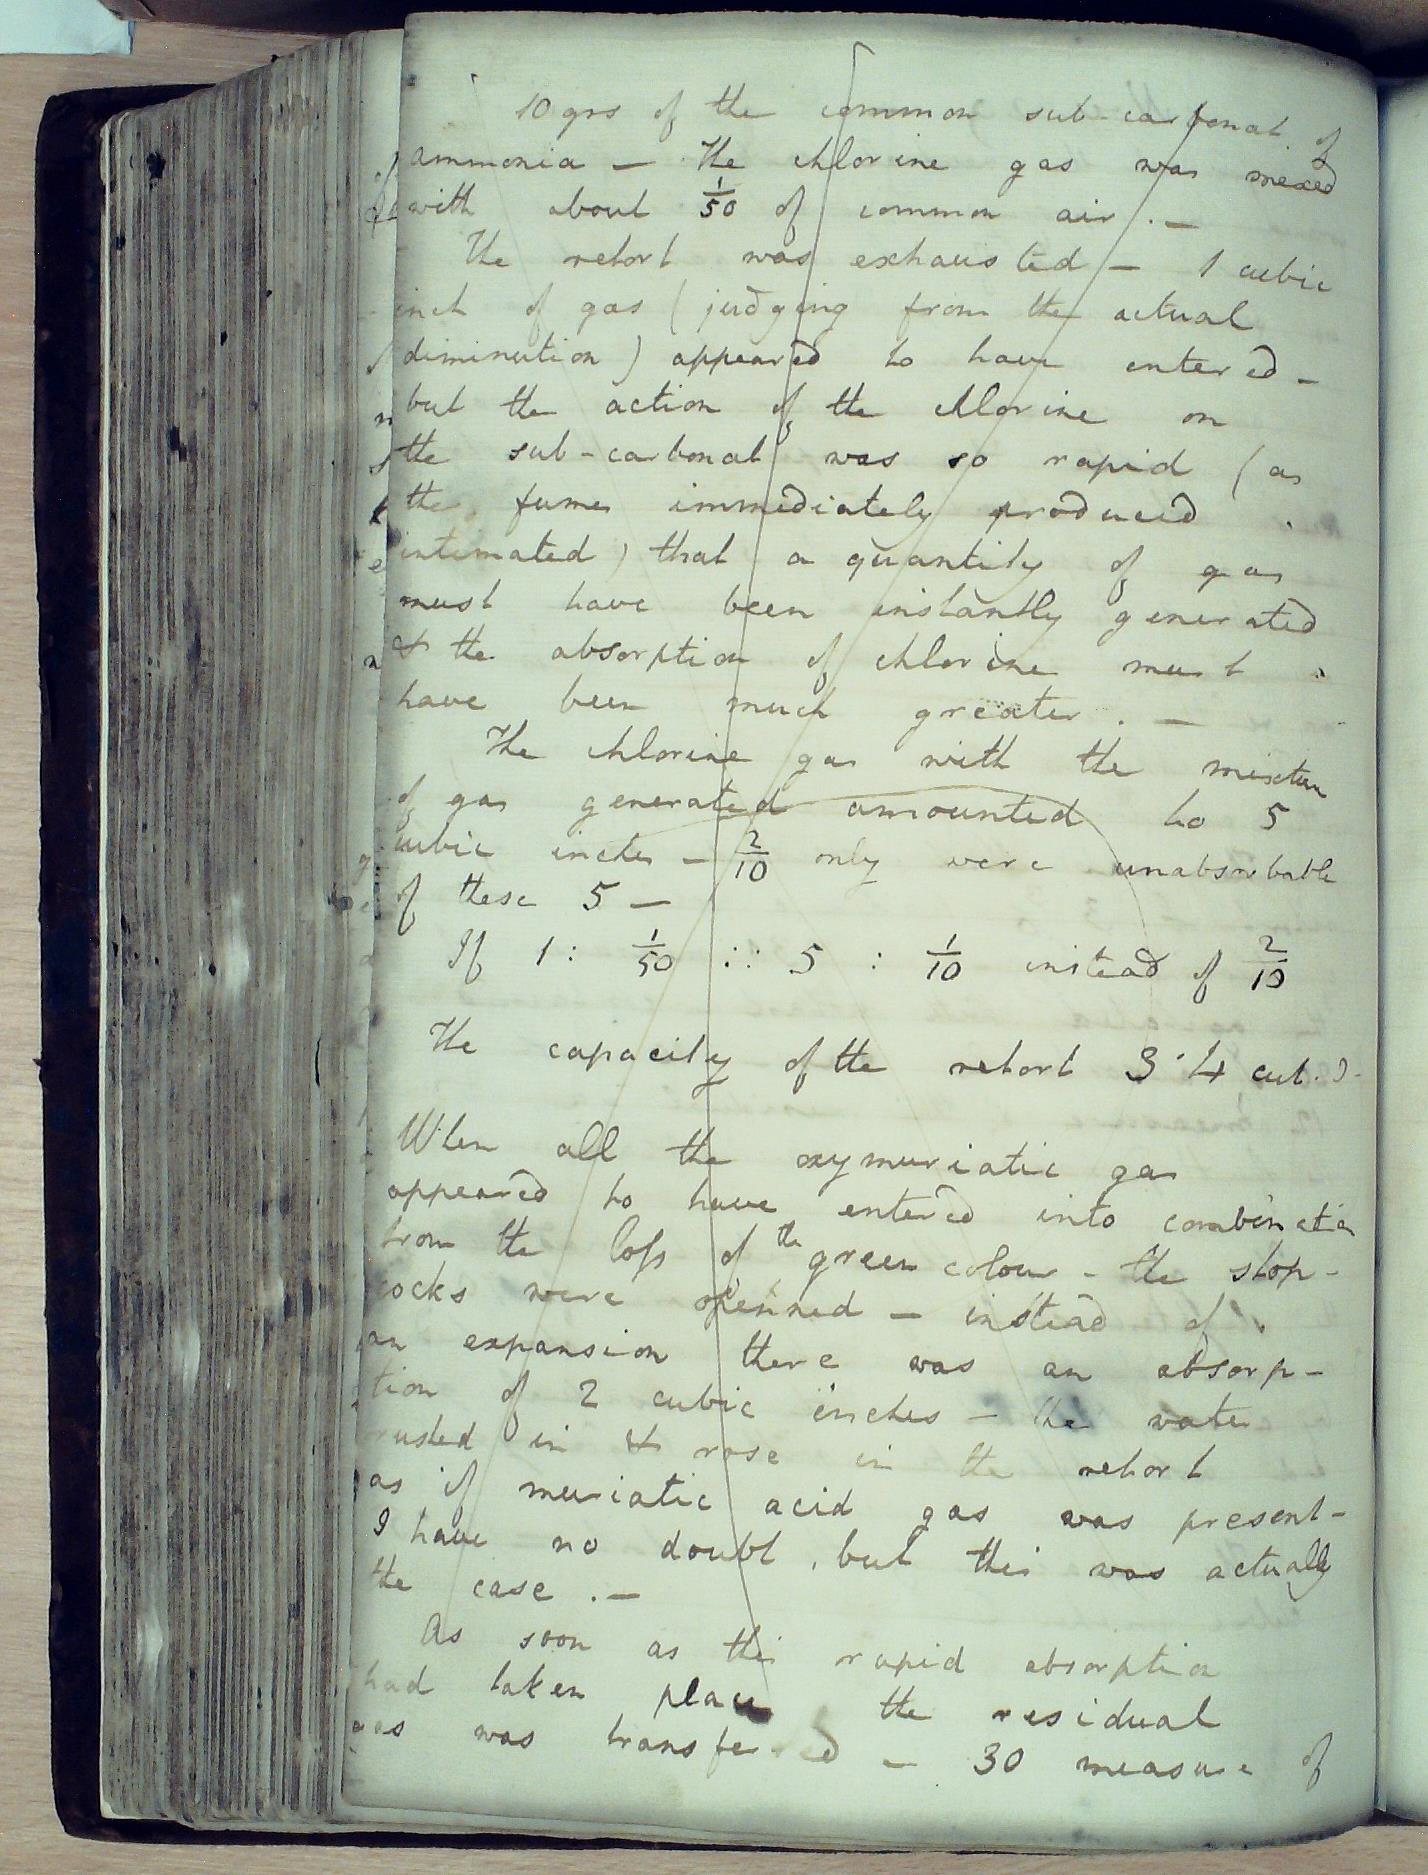 10 grs of the common sub-carbonat of
ammonia — The chlorine gas was mixed
with about 1/50 of common air . —
The retort was exhausted — 1 cubic
inch of gas ( judging from the actual
diminution ) appeared to have entered —
but the action of the chlorine on
the sub-carbonat was so rapid ( as
the fumes immediately produced
intimated ) that a quantity of gas
must have been instantly generated
& the absorption of chlorine must
have been much greater . —
The chlorine gas with the mixture
of gas generated amounted to 5
cubic inches — 2/10 only were unabsorbable
of these 5 —
If 1 : 1/50 :: 5 : 1/10 instead of 2/10
The capacity of the retort 3·4 cub. I.
When all the oxymuriatic gas
appeared to have entered into combination
from the loss of the green colour - the stop-
cocks were openned — instead of
an expansion there was an absorp-
tion of 2 cubic inches — the water
rushed in & rose in the retort
as if muriatic acid gas was present —
I have no doubt , but this was actually
the case . —
As soon as this rapid absorption
had taken place the residual
gas was transferred — 30 measure of